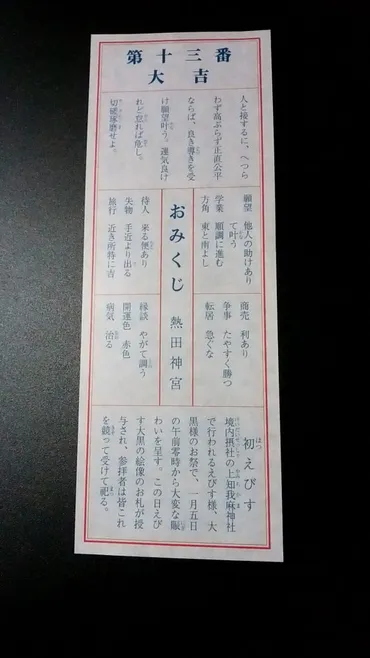 第十三番
大吉
人と接するに、へつら
わず高ぶらず正直公平
ならば、良き導きを受
け願望叶う。運気良け
れど怠れば危し。
切磋琢磨せよ。
願望 他人の助けあり
て叶う
学業 順調に進む
方角 東と南よし
待人 来る便あり
失物 手近より出る
旅行 近き所特に吉
おみくじ 熱田神宮
商売 利あり
争事 たやすく勝つ
転居 急ぐな
縁談 やがて調う
開運色 赤色
病気 治る
初えびす
境内摂社の上知我麻神社
で行われるえびす様、大
黒様のお祭で、一月五日
の午前零時から大変な賑
わいを呈す。この日えび
す大黒の絵像のお札が授
与され、参拝者は皆これ
を競って受けて祀る。